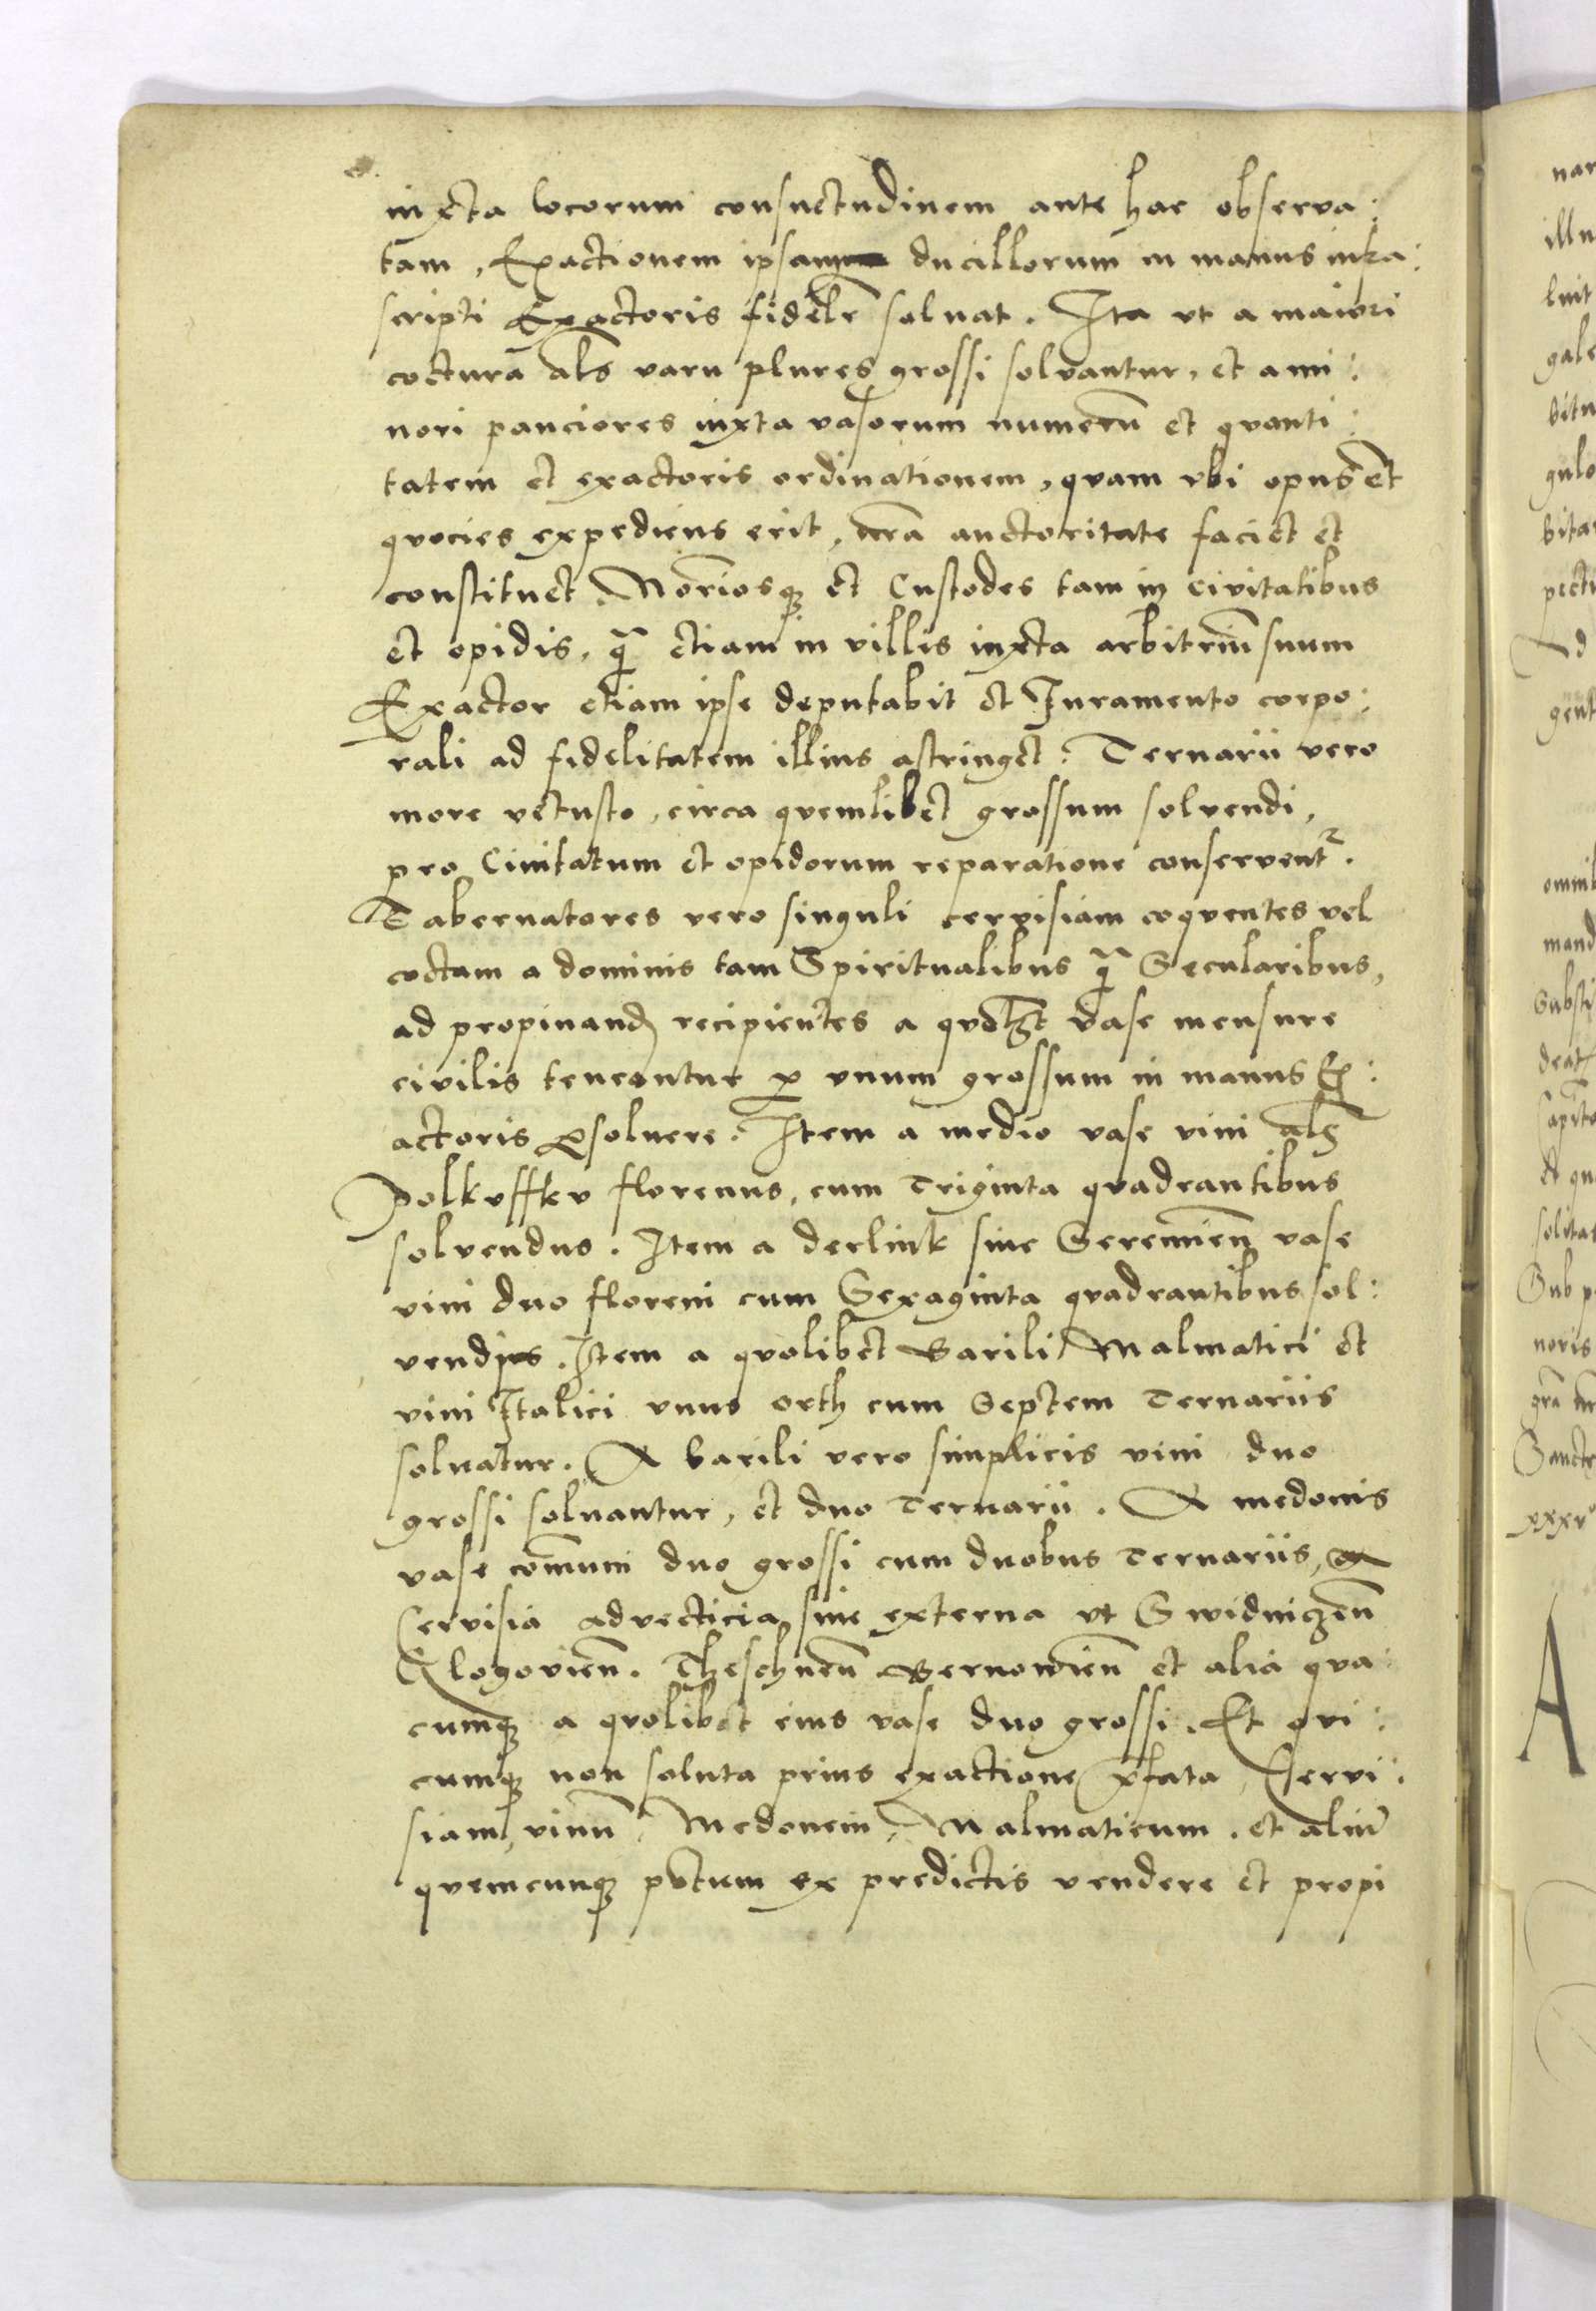 iuxta locorum consuetudinem ante hac observa:
tam, Exactionem ipsam ducillorum in manus infra:
scripti Exactoris fidelr soluat. Ita vt a maiori
coctura als varu plures grossi solvantur, et a mi:
nori pauciores iuxta vasorum numerū et quanti:
tatem et exactoris ordinationem, quam vbi opus et
quocies expediens erit, nrā auctoritate faciet et
constituet. Notriosq3 et Custodes tam in civitatibus
et opidis, q̄ etiam in villis iuxta arbitriū suum
Exactor etiam ipse deputabit et Iuramento corpo:
rali ad fidelitatem illius astringet: Ternarii vero
more vetusto, circa quemlibet grossum solvendi,
pro Civitatum et opidorum reparatione conserventr.
Tabernatores vero singuli cervisiam coquentes vel
coctam a dominis tam Spiritualibus q̄ Secularibus,
ad propinand recipientes a quolzt vase mensure
civilis teneantur p vnum grossum in manus Ex:
actoris psoluere. Item a medio vase vini als
Polkuffku florenus, cum Triginta quadrantibus
solvendus. Item a derlink sive Seremien̄ vase
vini duo floreni cum Sexaginta quadrantibus sol:
vendis. Item a quolibet Barili Malmatici et
vini Italici vnus orth cum Septem Ternariis
soluatur. A barili vero simplicis vini duo
grossi soluantur, et duo Ternarii. A medonis
vase com̄uni duo grossi cum duobus Ternariis, a
Cervisia advecticia sive externa vt Swidniczen̄
Glogovien̄. Theschnen̄ Bernowien̄ et alia qua
cumq3 a quolibet eius vase duo grossi. Et qui:
cumq3 non soluta prius exactione p̄fata, Cervi:
siam, vinū, Medonem, Malmaticum. et aliū
quemcunq3 potum ex predictis vendere et propi